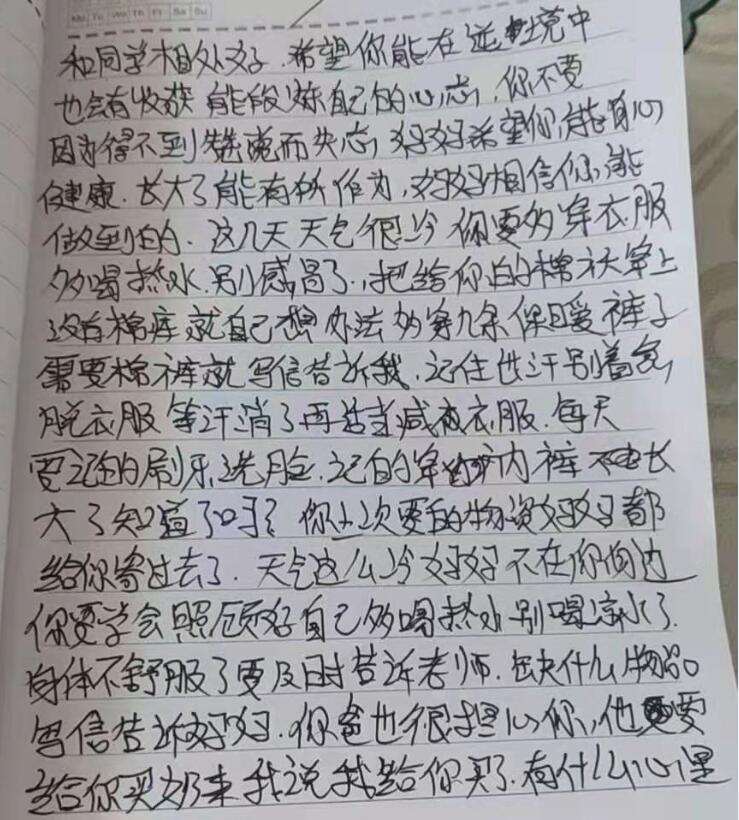 Mo Tu We Th Fr Sa Su
和同学相处好.希望你能在逆境中
也会有收获 能锻炼自己的心态,你不要
因为得不到 而失态,好好希望你,能身心
健康.长大了能有所作为,好好相信你,能
做到的.这几天天气很冷 你要多穿衣服
多喝热水.别感冒了,把给你的棉衣穿上
没有棉裤就自己想办法多穿几条保暖裤子
需要棉裤就写信告诉我.记住出汗别着急,
脱衣服 等汗消了再适当减衣服.每天
要记的刷牙洗脸.记的穿内裤 长
大了知道了吗?你上次要的物资好好都
给你寄过去了.天气这么冷好好不在你身边
你要学会照顾好自己多喝热水别喝凉水了.
身体不舒服了要及时告诉老师.缺什么物品
写信告诉好好.你爸也很担心你,他要
给你买奶来我说我给你买了.有什么心里